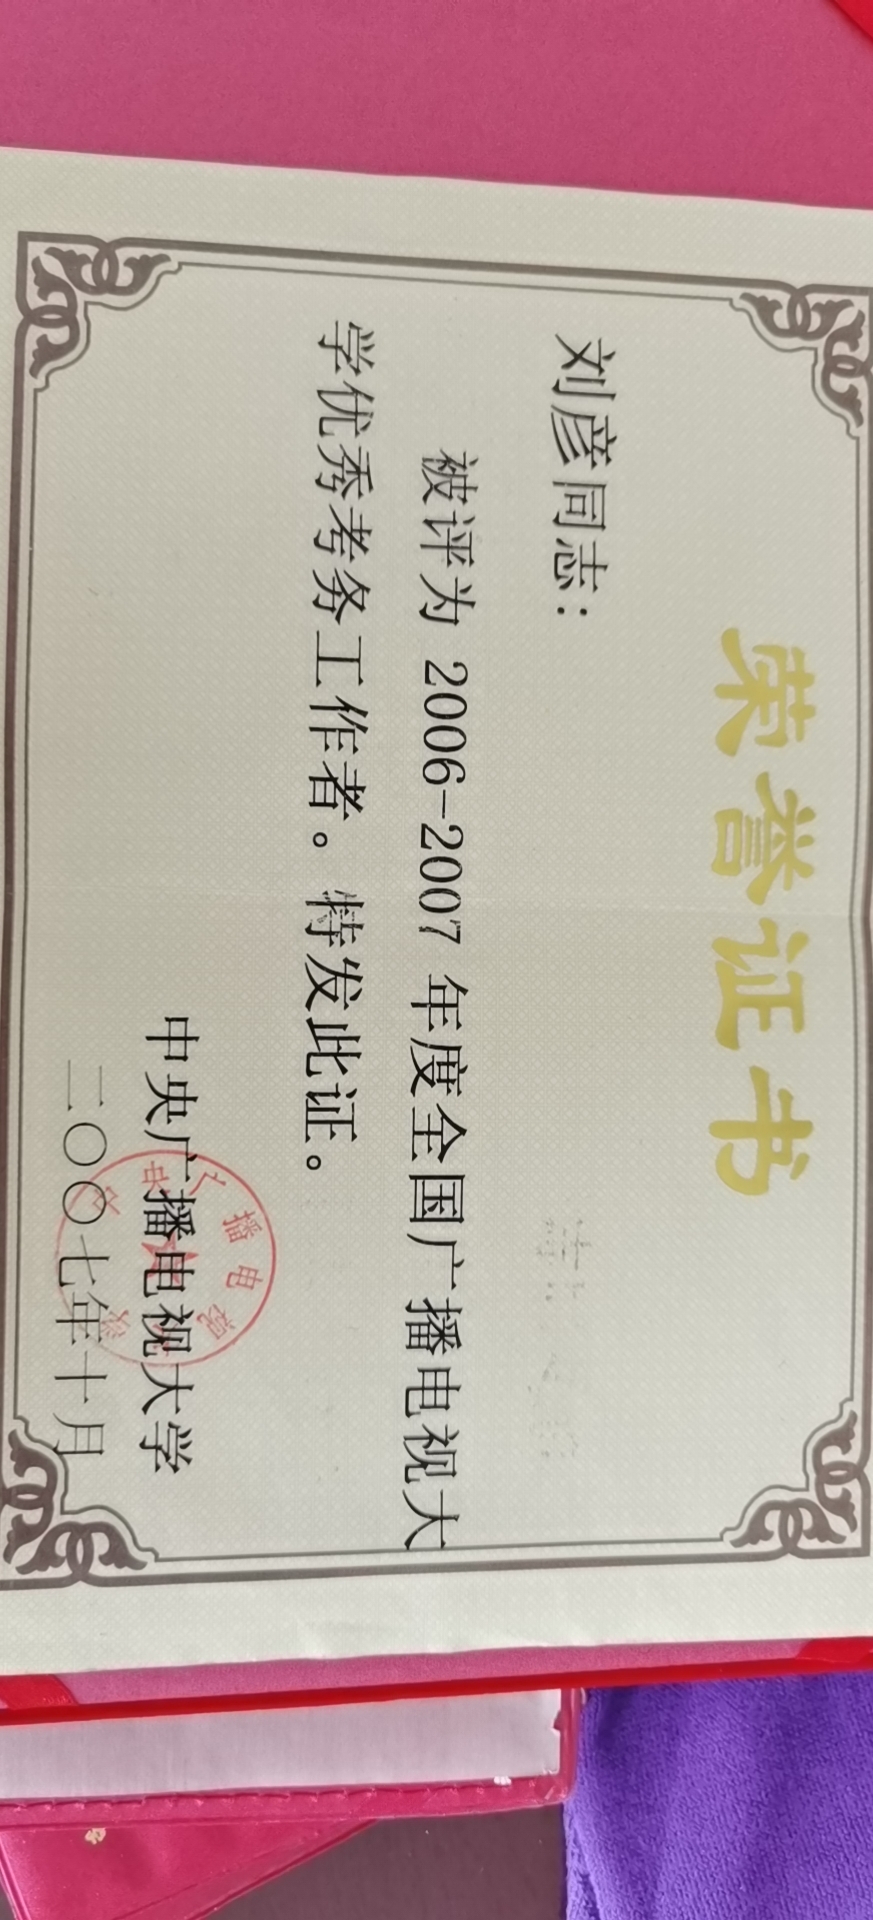 荣誉证书
刘彦同志：
被评为 2006-2007 年度全国广播电视大
学优秀考务工作者。特发此证。
中央广播电视大学
二〇〇七年十月